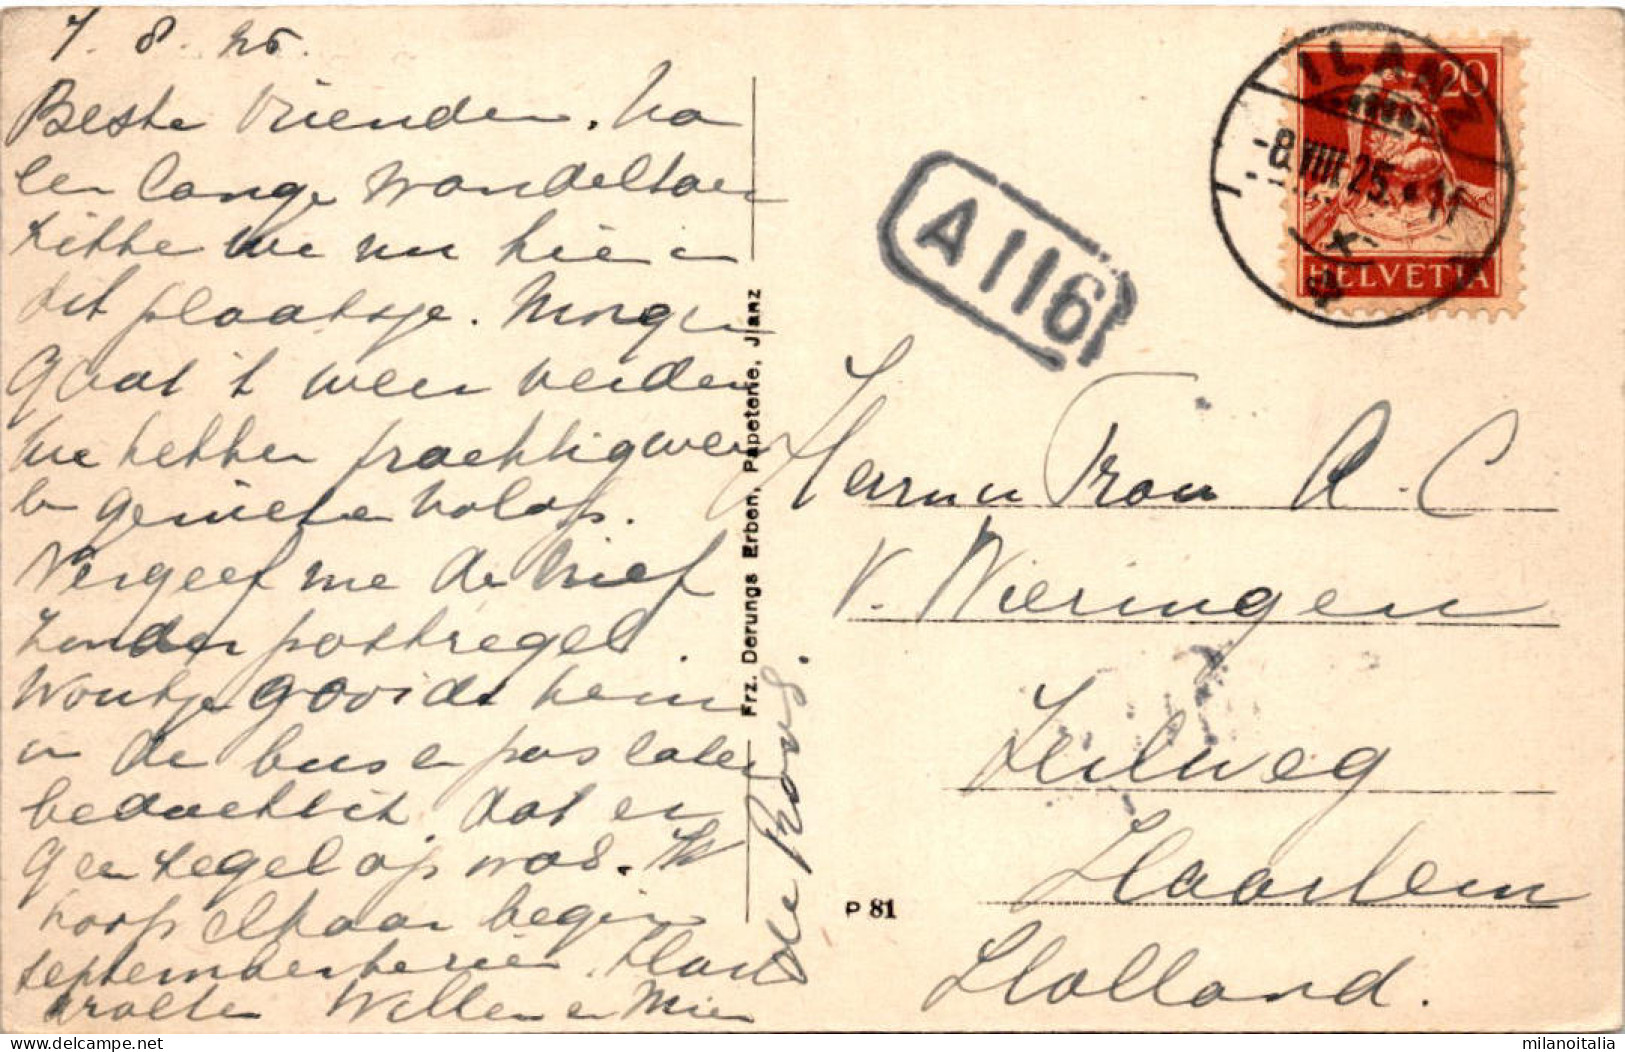 7.8.25.
Beste Vrienden. Na
een lange wandeltoer
zitten we nu hier in
dit plaatsje. Morgen
gaat 't weer verder
We hebben prachtig weer
en genieten volop.
Vergeef me de brief
zonder postzegel.
Woutje gooide hem
in de bus en pas later
bedacht ik dat er
geen zegel op was. Ik
hoop elkaar begin
september te zien. Hart
groeten Willem en Mien
de Kong.
Frz. Derungs Erben, Papeterie, Jlanz
A 116
ILANZ
-8.VIII.25.-11
20
HELVETIA
Herrn u Frau A.C
v. Wieringen
Zeilweg
Haarlem
Holland.
P 81
delcampe.net
milanoitalia